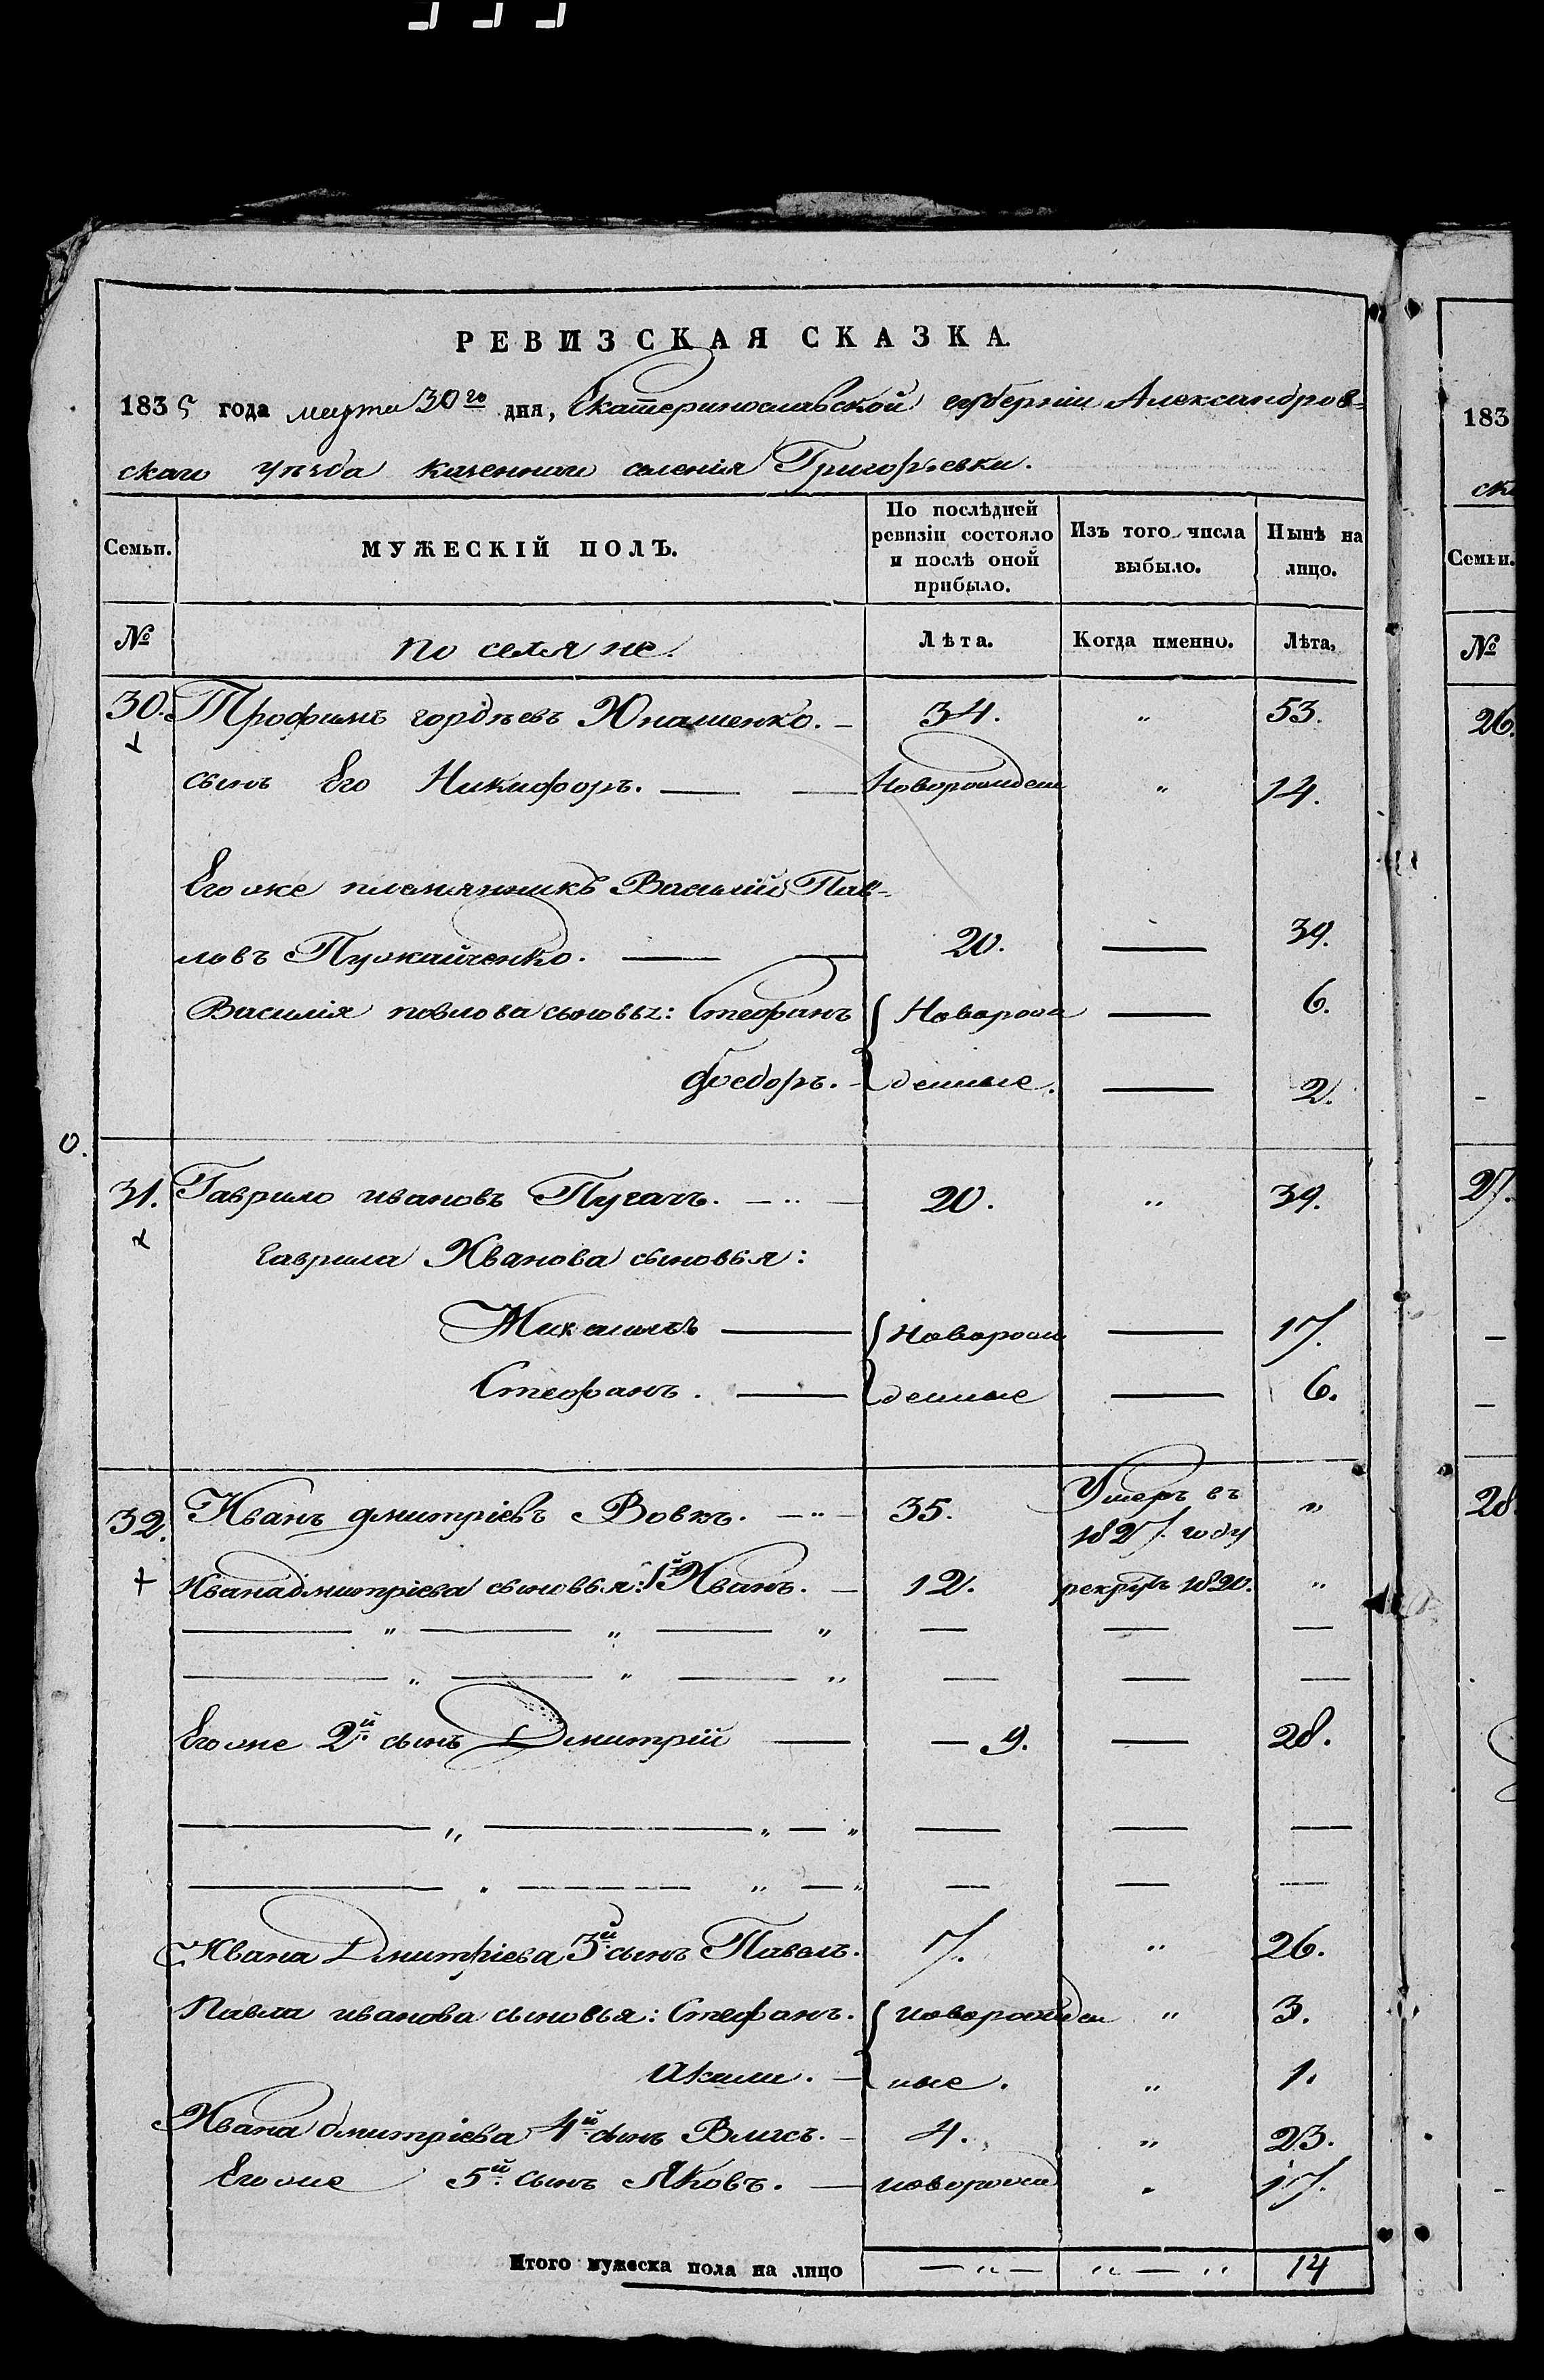 РЕВИЗСКАЯ СКАЗКА.
1835 года марта 30го дня, Екатеринославской губерніи Александров-
скаго уѣзда казеннаго селенія Григорьевки.
Семьи. МУЖЕСКІЙ ПОЛЪ. По послѣдней ревизіи состояло и послѣ оной прибыло. Изъ того числа выбыло. Ныиѣ на лицо.
№ поселяне. Лѣта. Когда именно. Лѣта,
30. Трофимъ гордѣевъ Юпашенко. — 34. „ 53.
сынъ Его Никифоръ. — — Новорожден „ 14.
Его же племянникъ Василій Пав-
ловъ Пужайченко. — — 20. — 39.
Василія павлова сыновья: Стефанъ { Новорож — 6.
Федоръ. — { денные. — 2.
0.
31. Гаврило ивановъ Пугачъ. — „ — 20. „ 39.
гаврила Иванова сыновья:
Михаилъ — { Новорож — 17.
Стефанъ. — { денные — 6.
32. Иванъ дмитріевъ Вовкъ. — „ — 35. Умеръ въ 1827. году „
Ивана дмитріева сыновья: 1й Иванъ. — 12. рекрутъ 1820. „
— „ — „ — „ — — —
— „ — „ — „ — — —
Его же 2й сынъ Дмитрій — — 9. — 28.
— „ — „ — „ — — —
— „ — — — — „ — „ — — —
Ивана Дмитріева 3й сынъ Павелъ. 7. „ 26.
Павла иванова сыновья: Стефанъ. { новорожден „ 3.
Акимъ. — { ные. „ 1.
Ивана дмитріева 4й сынъ Власъ. — 4. „ 23.
Его же 5й сынъ Яковъ. — новорожд „ 17.
Итого мужеска пола на лицо — „ — „ — „ 14
183
ск
Семьи.
№
26.
27.
28